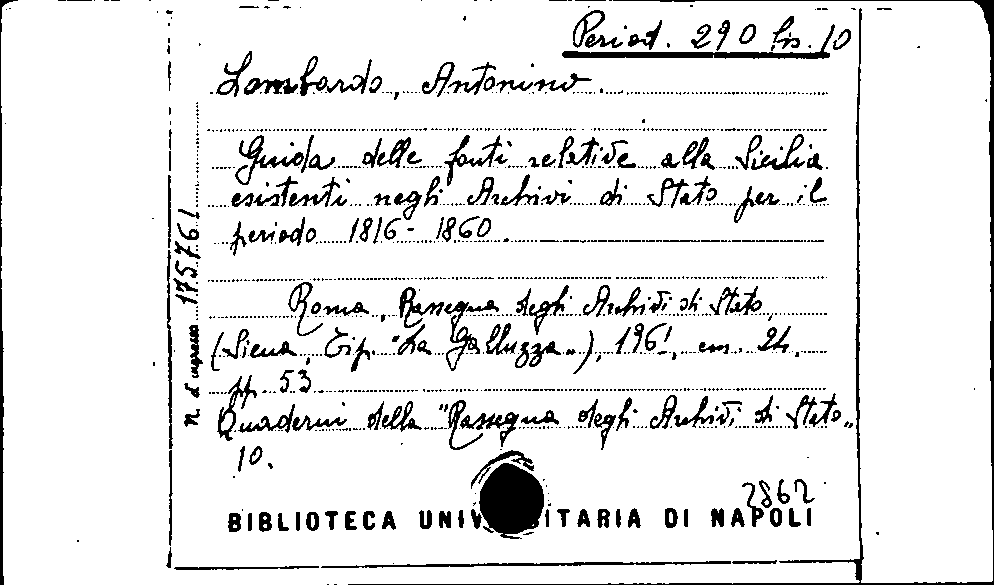 Period. 290 bis. 10
Lombardo, Antonino.
Guida delle fonti relative alla Sicilia
esistenti negli Archivi di Stato per il
periodo 1816 - 1860.
Roma, Rassegna degli Archivi di Stato,
(Siena, Tip. "La Galluzza"), 1961, cm. 24.
pp. 53.
Quaderni della "Rassegna degli Archivi di Stato"
10.
N. d'ingresso 175761
2862
BIBLIOTECA UNIV ITARIA DI NAPOLI